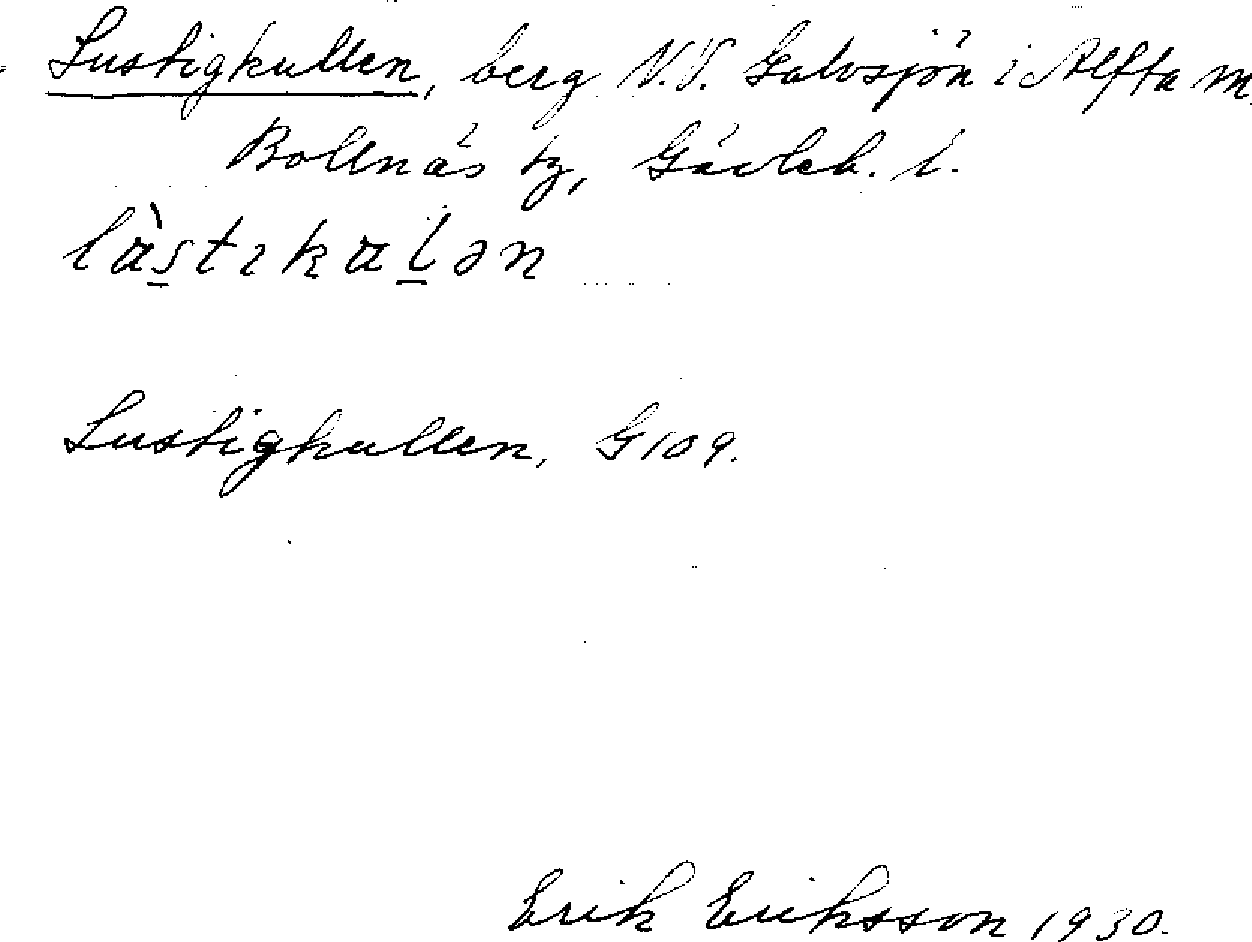 Lustigkullen, berg N.V. Galvsjön i Alfta m.
Bollnäs tg, Gävleb. l.
Lustigkullen, G109.
Erik Eriksson 1930.